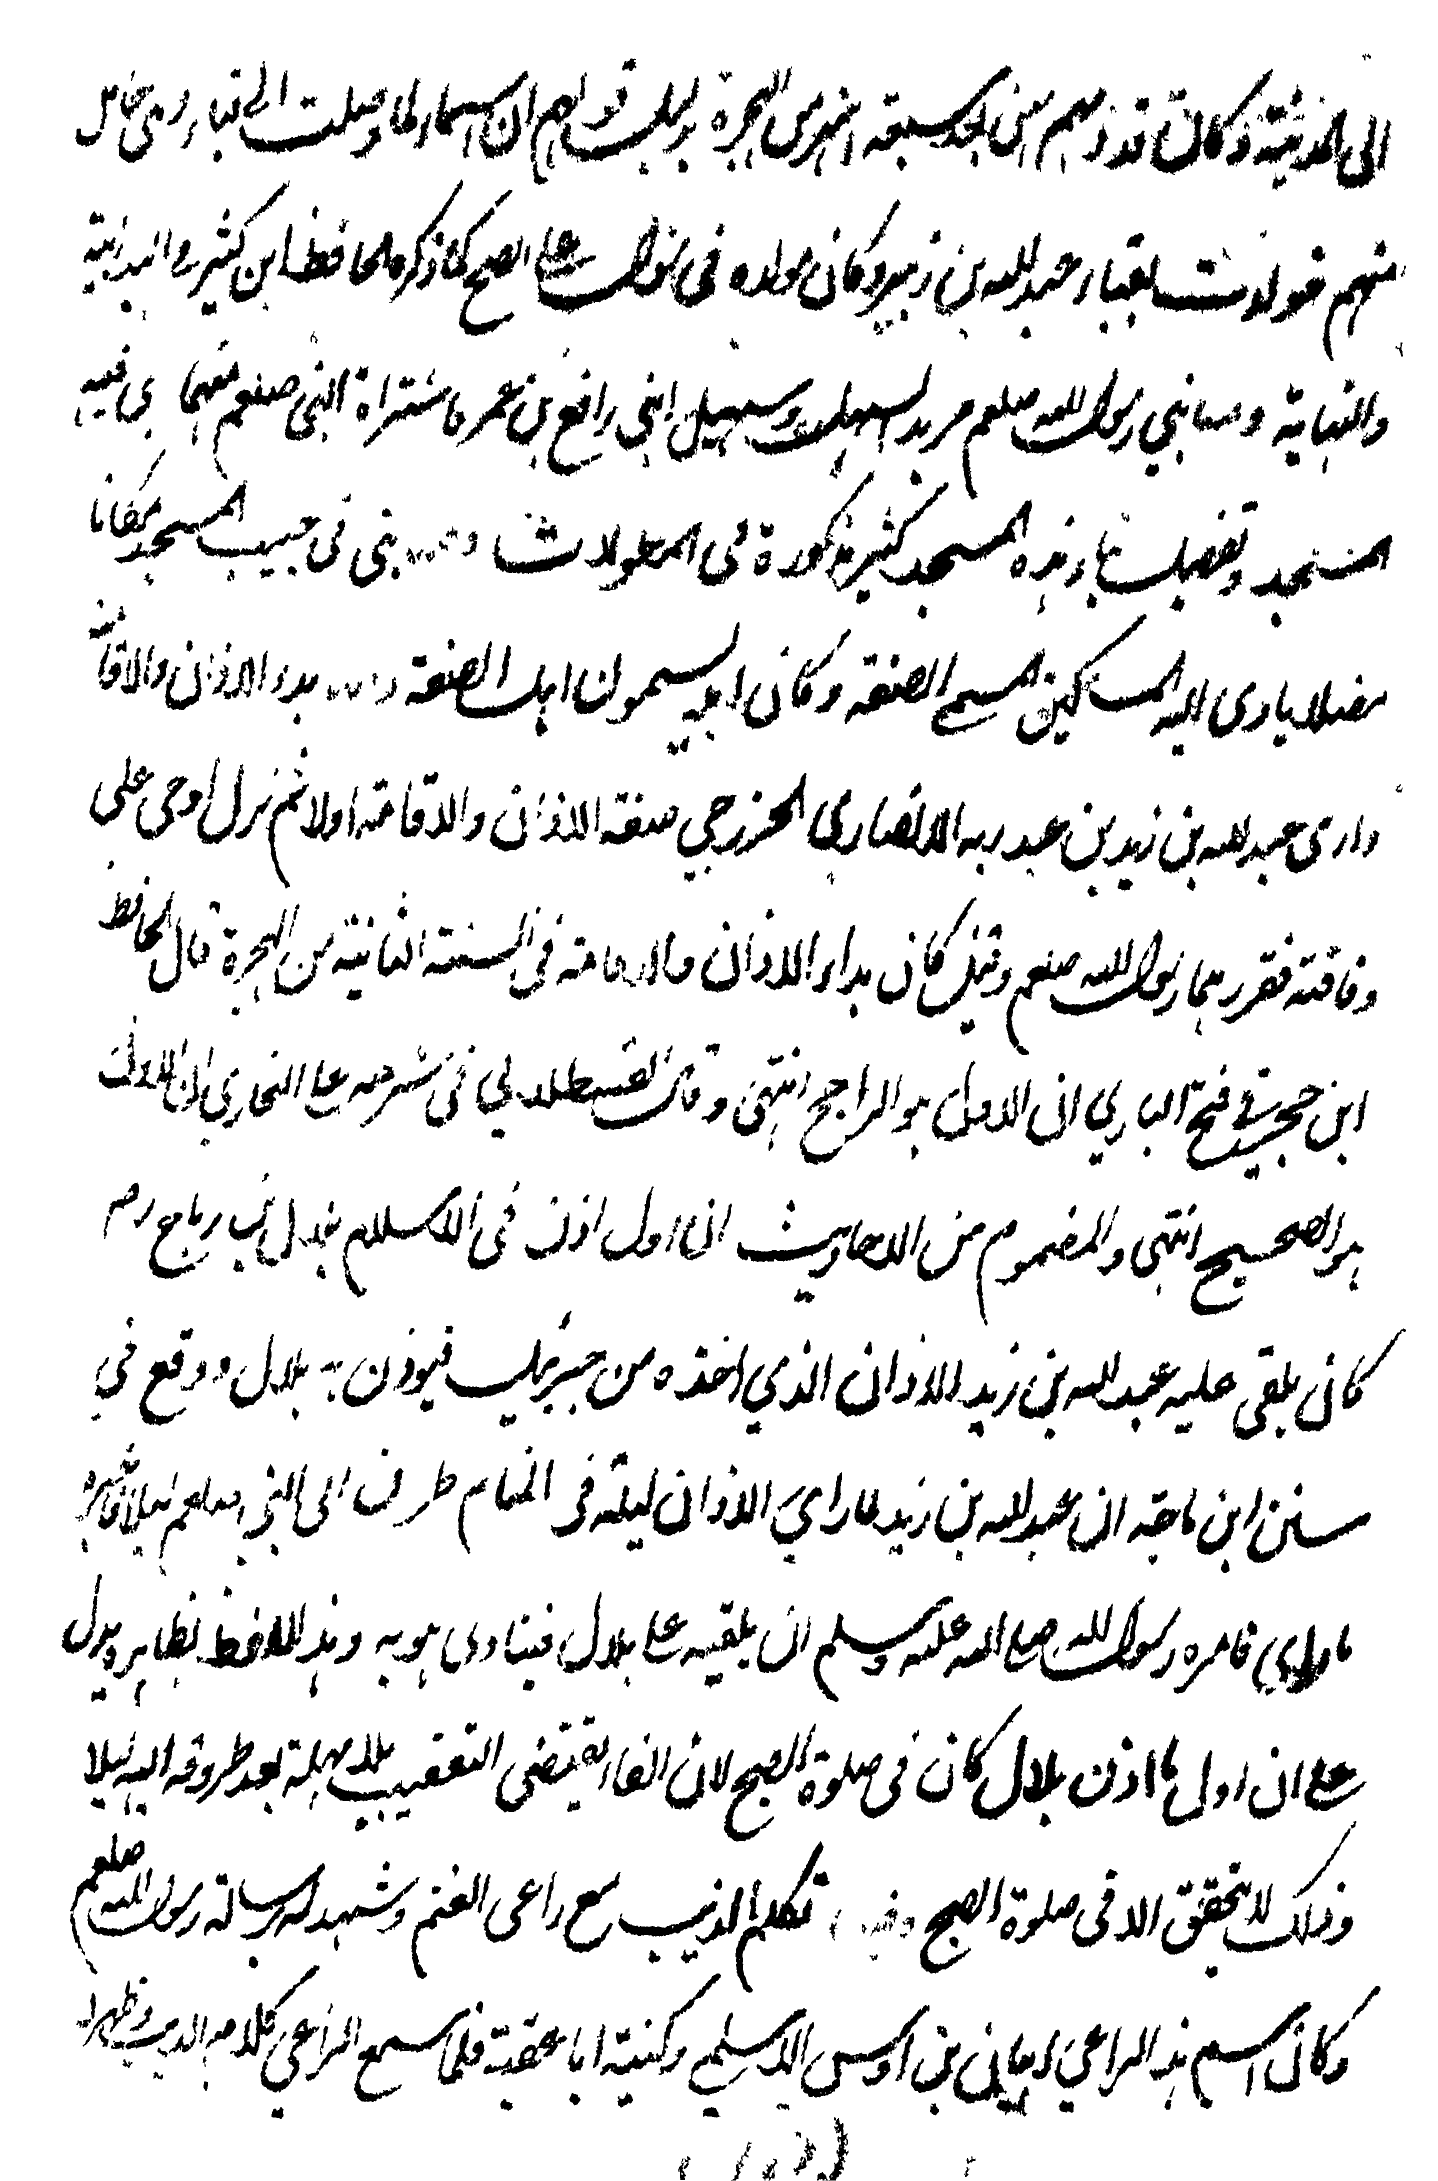 الى المدينة وكان قدومهم من بعد سبعة اشهر من الهجرة قولهم ان اسماء لما وصلت الى قباء وهى حامل
منهم فولدت بقباء عبد الله بن زبير وكان مولده فى شوال على الصحيح كما ذكره الحافظ ابن كثير فى البداية
والنهاية وصابني رسول الله صلعم مربد لسهل وسهيل ابني رافع بن عمر فاشتراه النبى صلعم منهما بنى فيه
المسجد وتفصيل بناء هذه المسجد كثير مذكورة فى المطولات و بنى فى جنب المسجد مكانا
مظللا ياوى اليه المساكين المسمى الصفة وكان اهله يسمون اهل الصفة و بدء الاذان والاقامة
وارى عبد الله بن زيد بن عبد ربه الانصاري الخزرجي صفة الاذان والاقامة اولا ثم نزل الوحى على
وفاقته فقرر بهما رسول الله صلعم وقيل كان بداء الاذان والاقامة فى السنة الثانية من الهجرة قال الحافظ
ابن حجر فى فتح الباري ان الاول هو الراجح انتهى وقال القسطلاني فى شرحه على البخاري ان الاول
هو الصحيح انتهى والمضموم من الاحاديث ان اول اذن فى الاسلام بلال بن رباح رض
كان يلقى عليه عبد الله بن زيد الاذان الذي اخذه من جبرئيل فيوذن به بلال ووقع في
سنن ابن ماجة ان عبد الله بن زيد لما راي الاذان ليلة فى المنام طرق الى النبي صلعم ليلا فاخبره
ما راي فامره رسول الله صلى الله عليه وسلم ان يلقيه على بلال فينادى هو به وهذ اللفظ بظاهره يدل
على ان اول ما اذن بلال كان فى صلوة الصبح لان الفاء يقتضى التعقيب بلا مهلة بعد طروقه اليه ليلا
وذلك لا يتحقق الا فى صلوة الصبح وفيها تكلم الذيب مع راعى الغنم وشهد له برسالة رسول الله صلعم
وكان اسم هذ الراعي اهبان بن اوس الاسلمي وكنيته ابا عقبة فلما سمع الراعي كلامه الذيب وظهر له